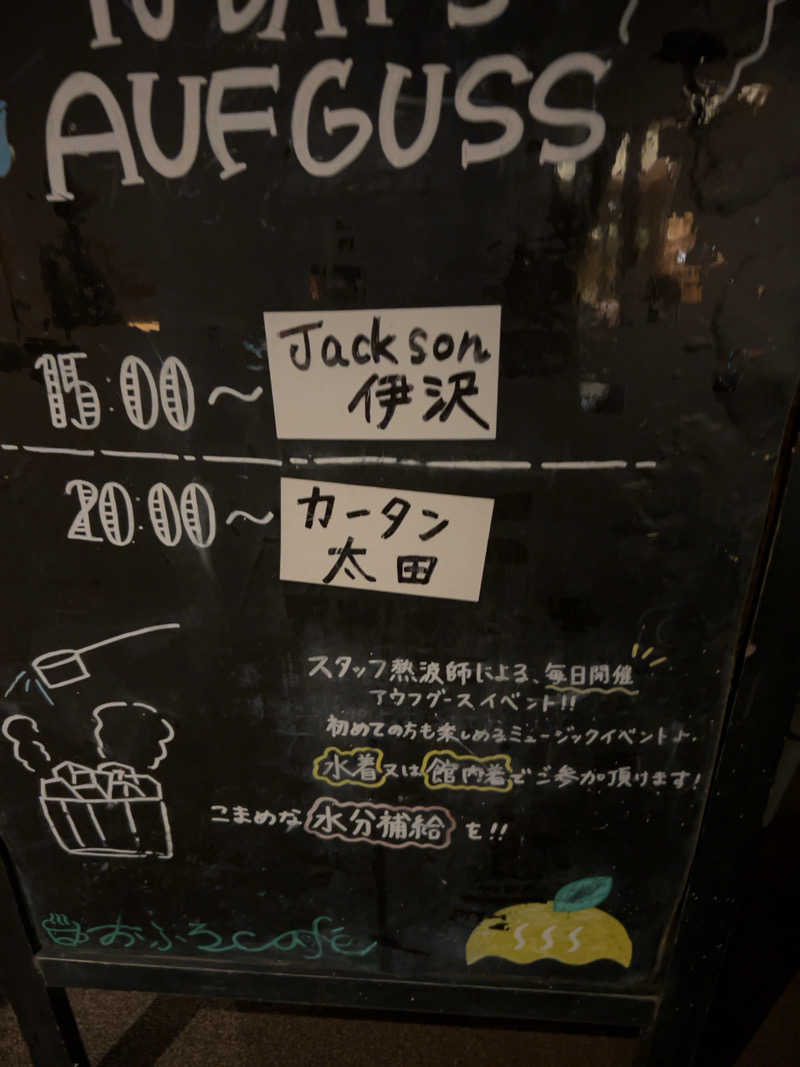 AUFGUSS
15:00～ Jackson
伊沢
20:00～ カータン
太田
スタッフ熱波師による、毎日開催
アウフグースイベント!!
初めての方も楽しめるミュージックイベント♪.
水着又は館内着でご参加頂けます!
こまめな水分補給を!!
おふろcafé